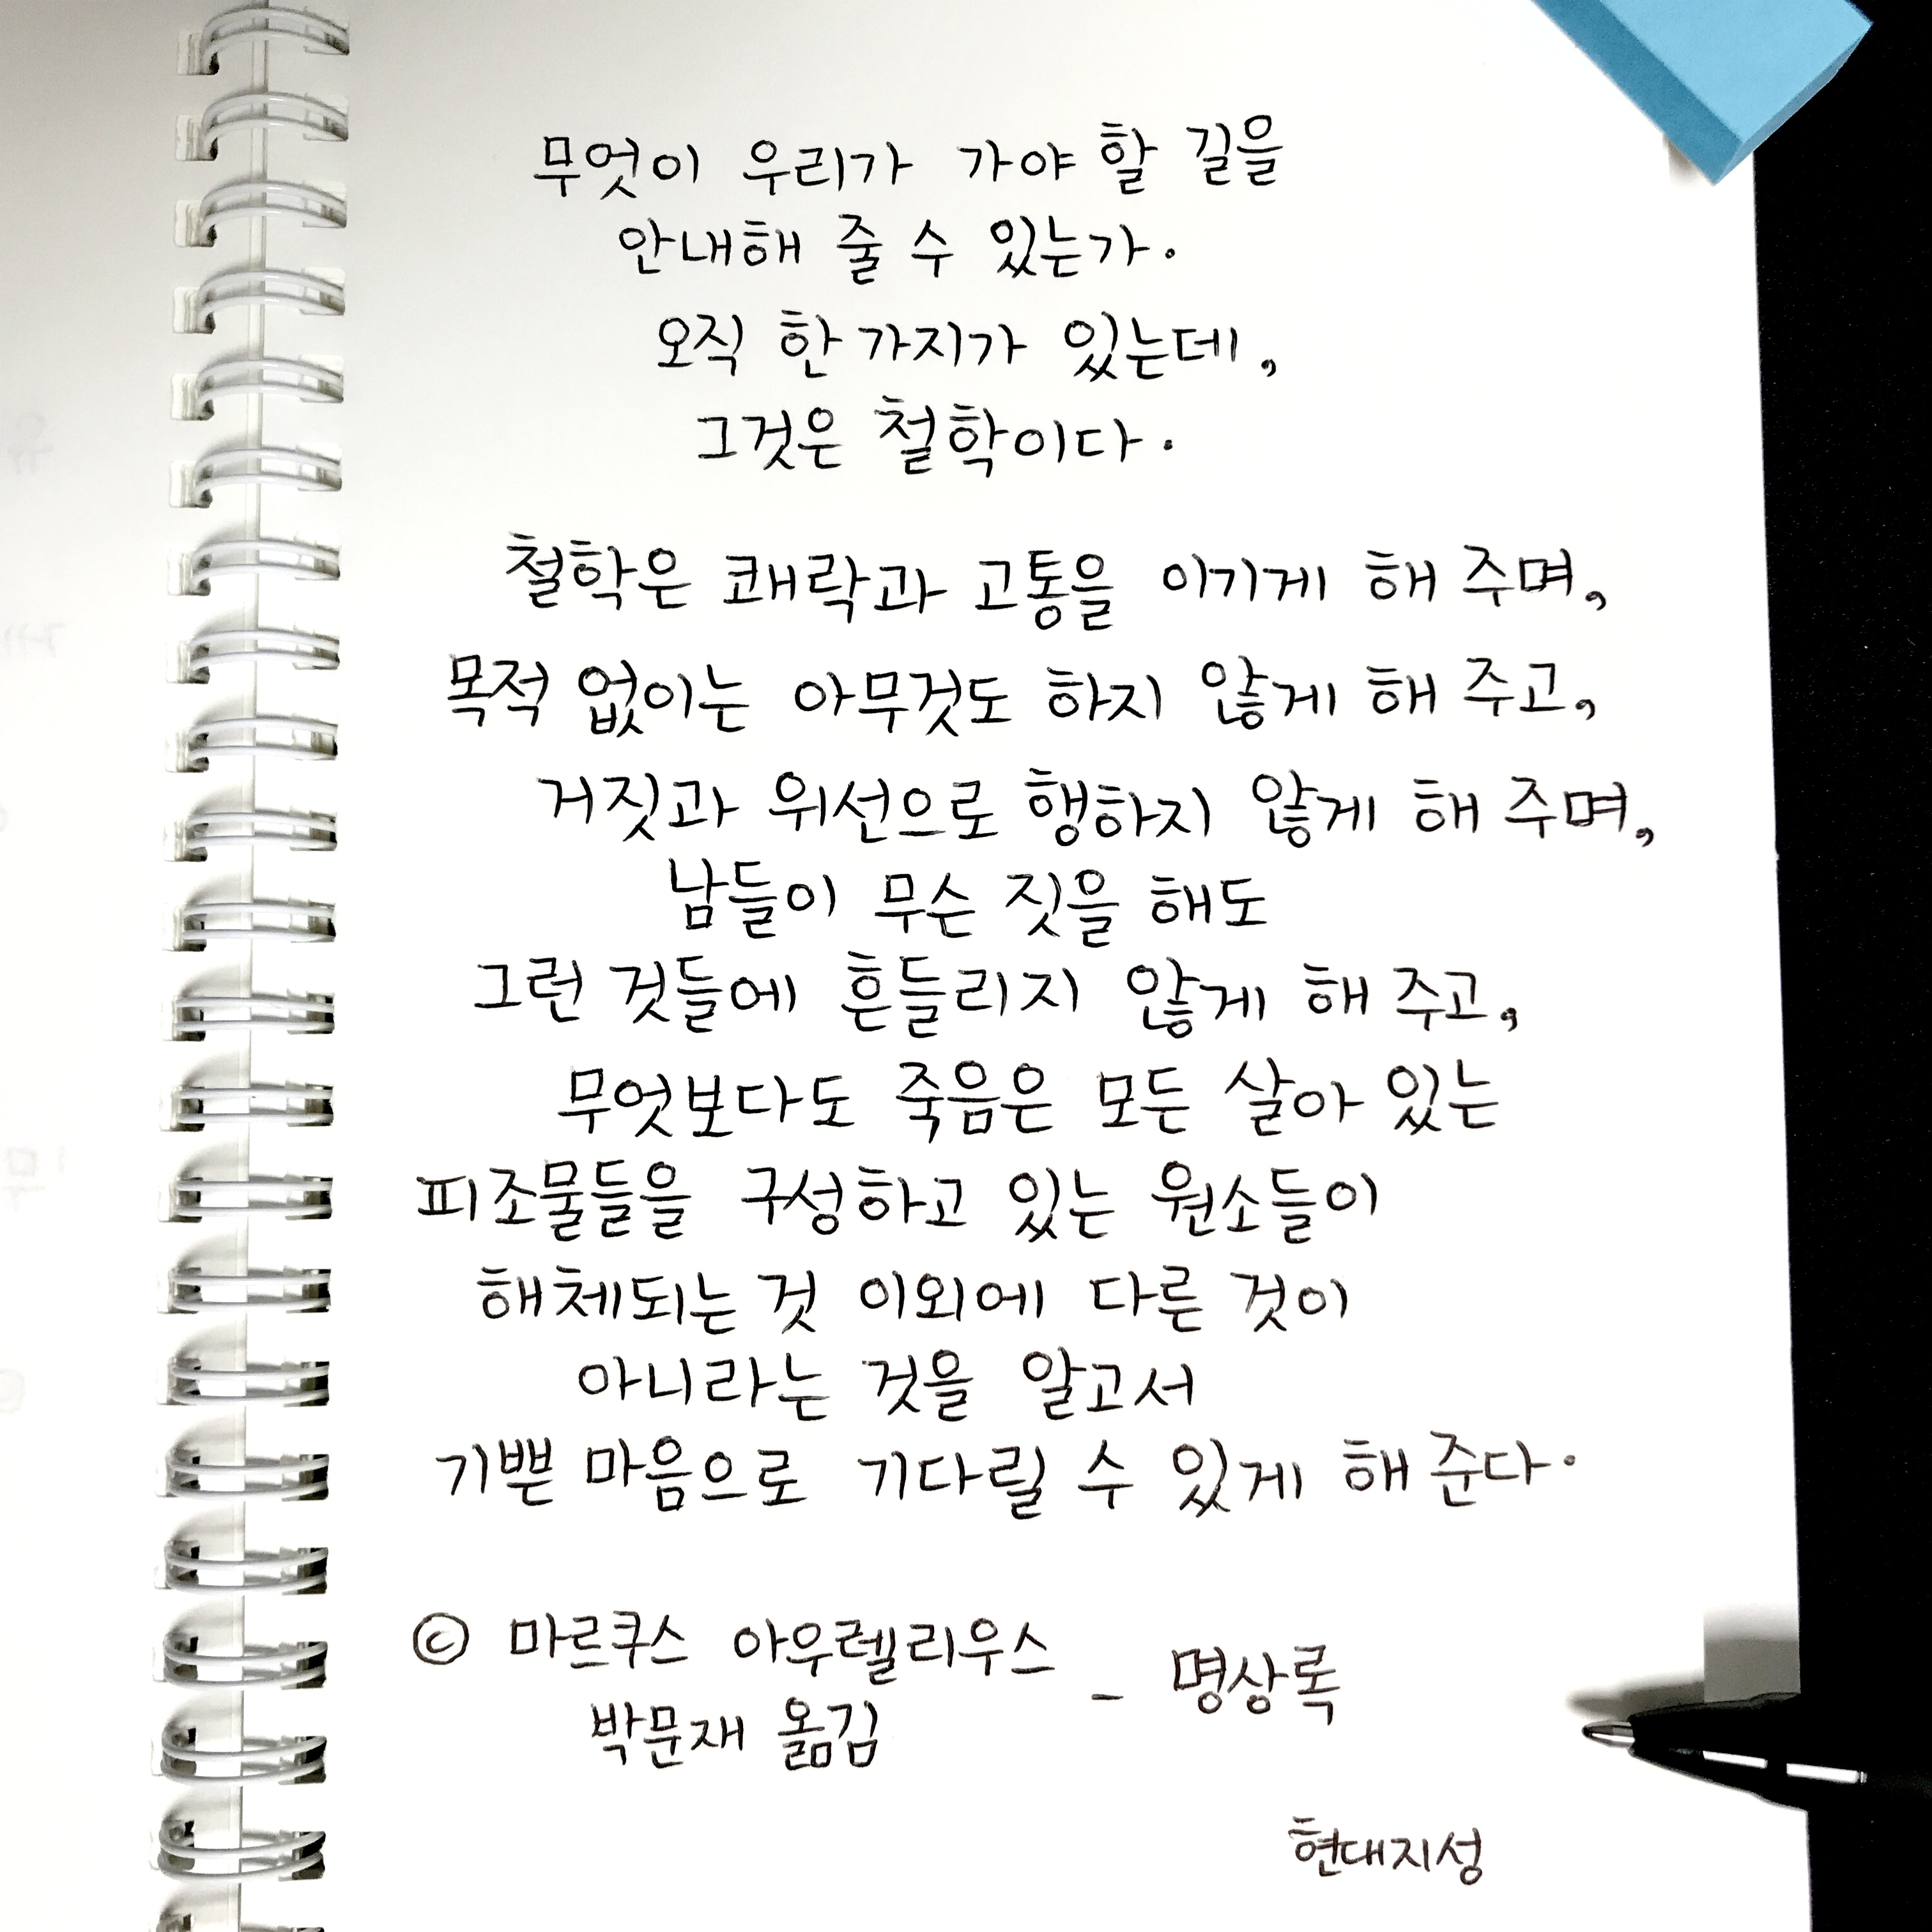 무엇이 우리가 가야 할 길을
안내해 줄 수 있는가.
오직 한 가지가 있는데,
그것은 철학이다.
철학은 쾌락과 고통을 이기게 해 주며,
목적 없이는 아무것도 하지 않게 해 주고,
거짓과 위선으로 행하지 않게 해 주며,
남들이 무슨 짓을 해도
그런 것들에 흔들리지 않게 해 주고,
무엇보다도 죽음은 모든 살아 있는
피조물들을 구성하고 있는 원소들이
해체되는 것 이외에 다른 것이
아니라는 것을 알고서
기쁜 마음으로 기다릴 수 있게 해 준다.
© 마르쿠스 아우렐리우스 - 명상록
박문재 옮김
현대지성